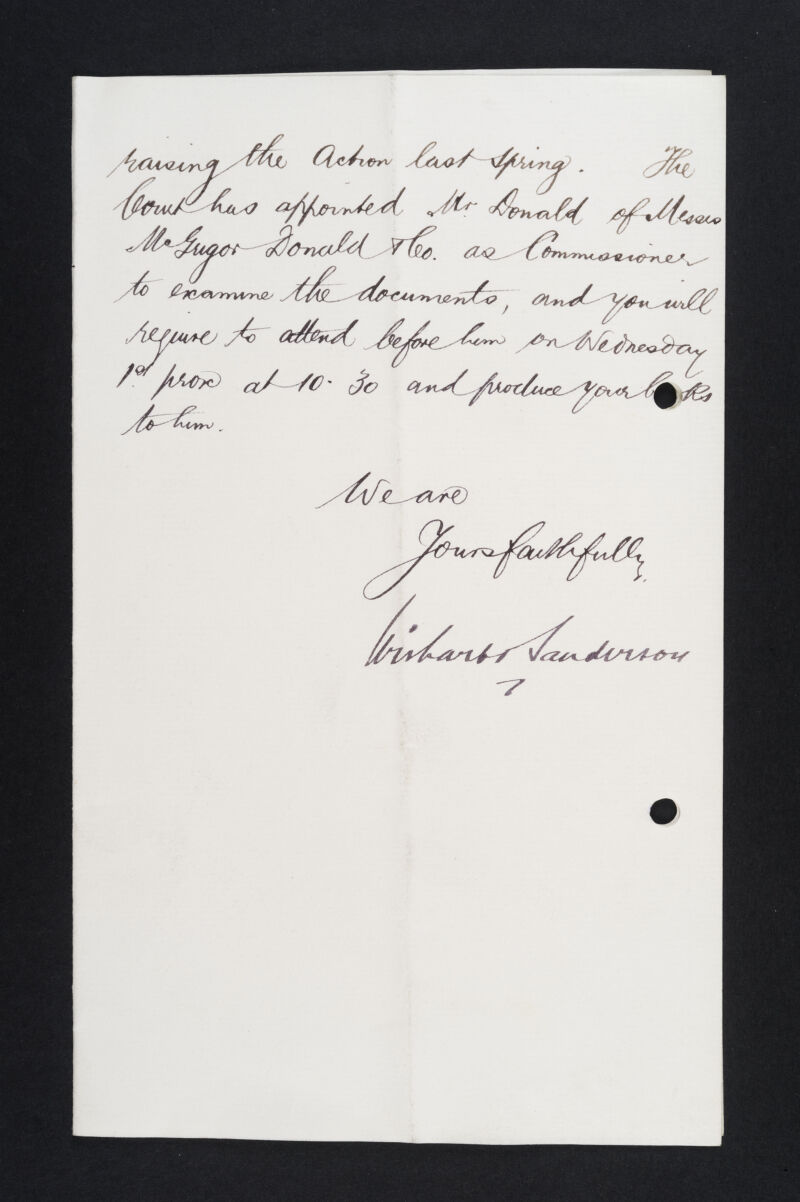 raising the Action last spring. The
Court has appointed Mr. Donald of Messrs
McGrigor Donald & Co. as Commissioner
to examine the documents, and you will
require to attend before him on Wednesday
1st prox at 10.30 and produce your books
to him.
We are
Yours faithfully,
Wishart & Sanderson